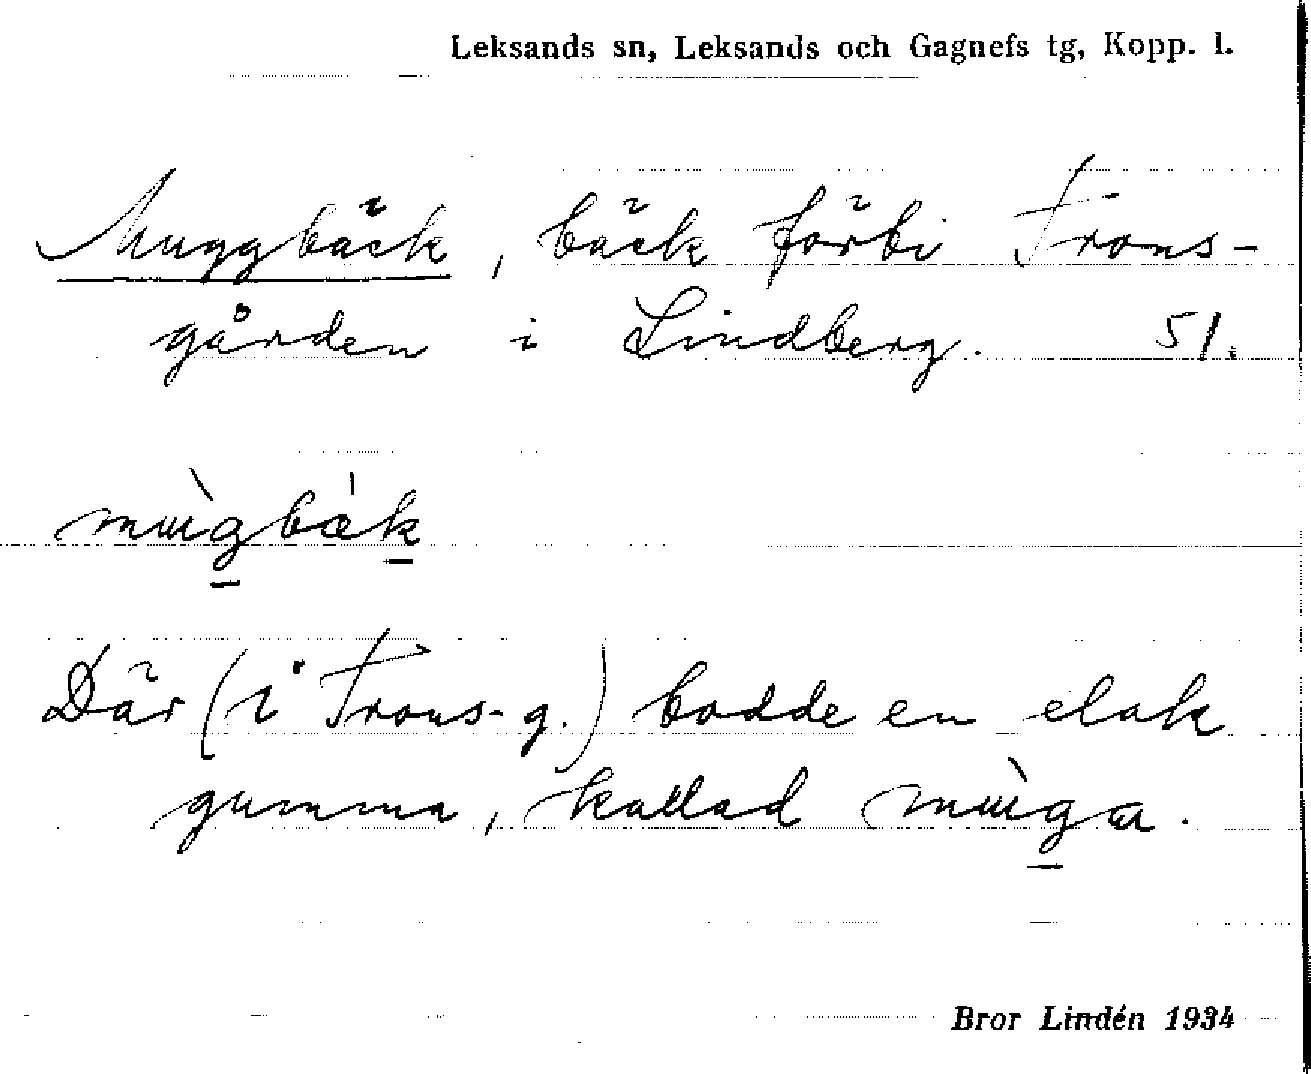 Leksands sn, Leksands och Gagnefs tg, Kopp. l.
Muggbäck, bäck förbi Trons-
gården i Lindberg. 51.
mɯ̀gbæ̀k
Där (i Trons-g.) bodde en elak
gumma, kallad mɯ̀ga.
Bror Lindén 1934